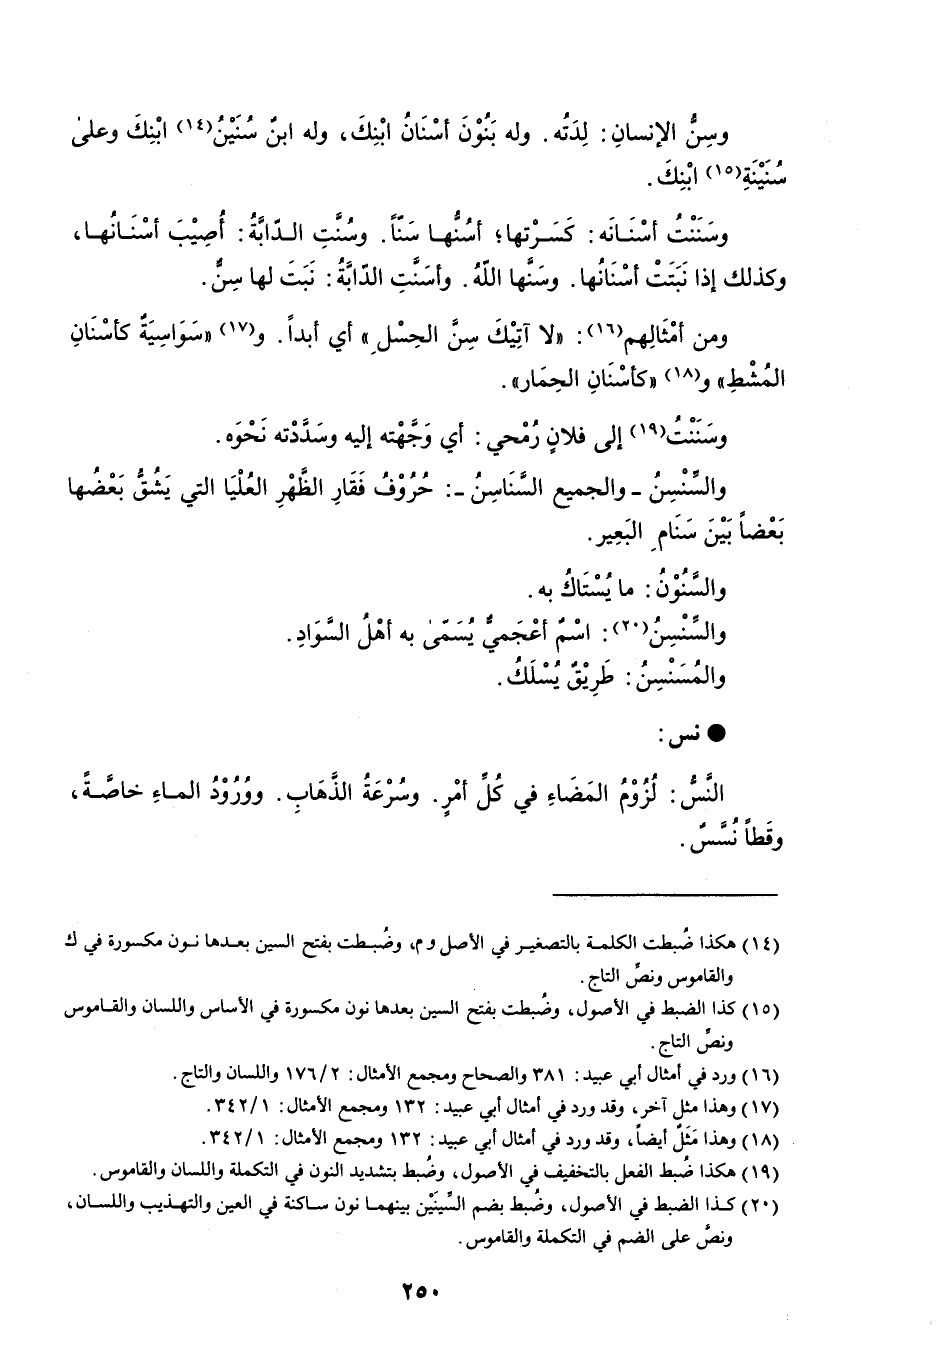 وسِنُّ الإنسانِ: لِدَتُه. وله بَنُوْنَ أسْنَانُ ابْنِكَ، وله ابنٌ سُنَيْنُ(١٤) ابْنِكَ وعلىٰ
سُنَيْنَةِ(١٥) ابْنِكَ.
وسَنَنْتُ أسْنَانَه: كَسَرْتها؛ أسُنُّها سَنّاً. وسُنَّتِ الدّابَّةُ: أُصِيْبَ أسْنَانُها،
وكذلك إذا نَبَتَتْ أسْنَانُها. وسَنَّها اللّهُ. وأسَنَّتِ الدّابَّةُ: نَبَتَ لها سِنٌّ.
ومن أمْثَالِهم(١٦): «لا آتِيْكَ سِنَّ الحِسْلِ» أي أبداً. و(١٧) «سَوَاسِيَةٌ كأسْنَانِ
المُشْطِ» و(١٨) «كأسْنَانِ الحِمَار».
وسَنَنْتُ(١٩) إلى فلانٍ رُمْحي: أي وَجَّهْته إليه وسَدَّدْته نَحْوَه.
والسِّنْسِنُ ـ والجميع السَّنَاسِنُ ـ: حُرُوْفُ فَقَارِ الظَّهْرِ العُلْيَا التي يَشُقُّ بَعْضُها
بَعْضاً بَيْنَ سَنَامِ البَعِير.
والسَّنُوْنُ: ما يُسْتَاكُ به.
والسِّنْسِنُ(٢٠): اسْمٌ أعْجَميٌّ يُسَمّىٰ به أهْلُ السَّوَادِ.
والمُسَنْسِنُ: طَرِيْقٌ يُسْلَكُ.
● نس:
النَّسُّ: لُزُوْمُ المَضَاءِ في كُلِّ أمْرٍ. وسُرْعَةُ الذَّهَابِ. ووُرُوْدُ الماءِ خاصَّةً،
وقَطاً نُسَّسٌ.
(١٤) هكذا ضُبطت الكلمة بالتصغير في الأصل وم، وضُبطت بفتح السين بعدها نون مكسورة في ك
والقاموس ونصِّ التاج.
(١٥) كذا الضبط في الأصول، وضُبطت بفتح السين بعدها نون مكسورة في الأساس واللسان والقاموس
ونصِّ التاج.
(١٦) ورد في أمثال أبي عبيد: ٣٨١ والصحاح ومجمع الأمثال: ١٧٦/٢ واللسان والتاج.
(١٧) وهذا مثل آخر، وقد ورد في أمثال أبي عبيد: ١٣٢ ومجمع الأمثال: ٣٤٢/١.
(١٨) وهذا مَثَلٌ أيضاً، وقد ورد في أمثال أبي عبيد: ١٣٢ ومجمع الأمثال: ٣٤٢/١.
(١٩) هكذا ضُبط الفعل بالتخفيف في الأصول، وضُبط بتشديد النون في التكملة واللسان والقاموس.
(٢٠) كذا الضبط في الأصول، وضُبط بضم السِّينَيْن بينهما نون ساكنة في العين والتهذيب واللسان،
ونصَّ على الضم في التكملة والقاموس.
٢٥٠